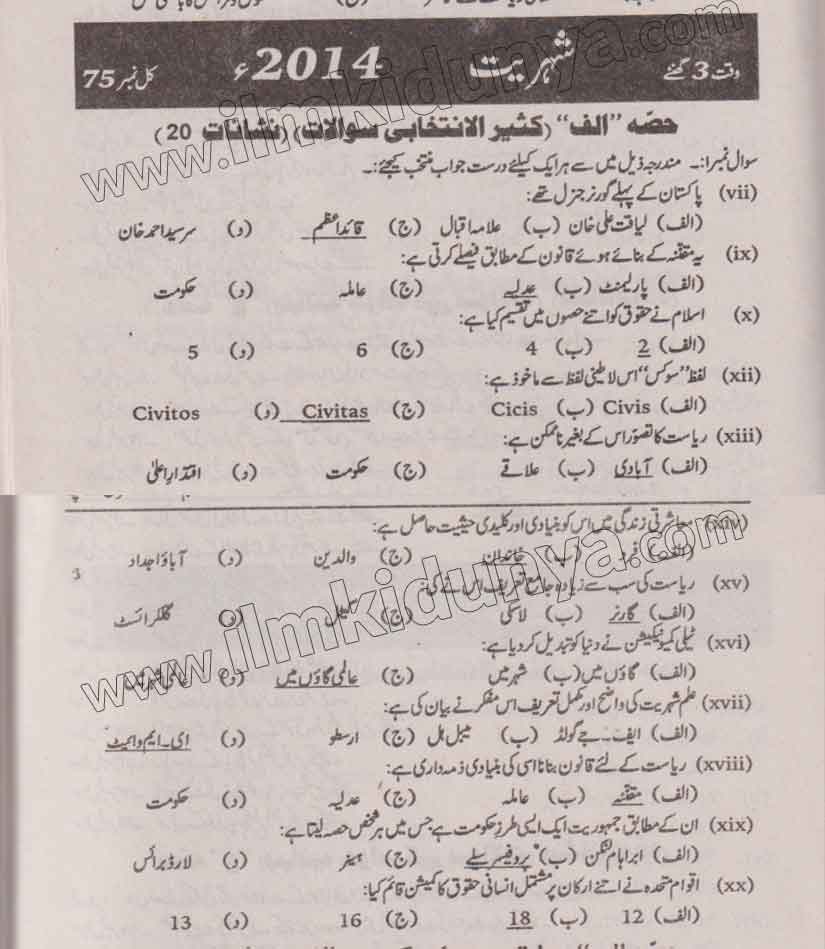 شہریت 2014ء
وقت 3 گھنٹے
کل نمبر 75
حصّہ "الف" (کثیر الانتخابی سوالات) (نشانات 20)
سوال نمبر1:۔ مندرجہ ذیل میں سے ہر ایک کیلئے درست جواب منتخب کیجئے:۔
(vii) پاکستان کے پہلے گورنر جنرل تھے:
(الف) لیاقت علی خان (ب) علامہ اقبال (ج) قائداعظم (د) سرسید احمد خان
(ix) یہ مقننہ کے بنائے ہوئے قانون کے مطابق فیصلے کرتی ہے:
(الف) پارلیمنٹ (ب) عدلیہ (ج) عاملہ (د) حکومت
(x) اسلام نے حقوق کو اتنے حصوں میں تقسیم کیا ہے:
(الف) 2 (ب) 4 (ج) 6 (د) 5
(xii) لفظ "سوکس" اس لاطینی لفظ سے ماخوذ ہے:
(الف) Civis (ب) Cicis (ج) Civitas (د) Civitos
(xiii) ریاست کا تصوّر اس کے بغیر ناممکن ہے:
(الف) آبادی (ب) علاقے (ج) حکومت (د) اقتدارِ اعلیٰ
(xiv) معاشرتی زندگی میں اس کو بنیادی اور کلیدی حیثیت حاصل ہے:
(الف) فرد (ب) خاندان (ج) والدین (د) آباؤ اجداد
(xv) ریاست کی سب سے زیادہ جامع تعریف اس نے کی:
(الف) گارنر (ب) لاسکی (ج) (د) گلکرائسٹ
(xvi) ٹیلی کمیونیکیشن نے دنیا کو تبدیل کردیا ہے:
(الف) گاؤں میں (ب) شہر میں (ج) عالمی گاؤں میں (د) عالمی شہر میں
(xvii) علم شہریت کی واضح اور مکمل تعریف اس مفکر نے بیان کی ہے:
(الف) ایف۔جے گولڈ (ب) میبل ہل (ج) ارسطو (د) ای۔ایم وہائیٹ
(xviii) ریاست کے لئے قانون بنانا اسی کی بنیادی ذمہ داری ہے:
(الف) مقننہ (ب) عاملہ (ج) عدلیہ (د) حکومت
(xix) ان کے مطابق جمہوریت ایک ایسی طرزِ حکومت ہے جس میں ہر شخص حصہ لیتا ہے:
(الف) ابراہام لنکن (ب) پروفیسر سیلے (ج) (د) لارڈ برائس
(xx) اقوام متحدہ نے اتنے ارکان پر مشتمل انسانی حقوق کا کمیشن قائم کیا:
(الف) 12 (ب) 18 (ج) 16 (د) 13
www.ilmkidunya.com
www.ilmkidunya.com